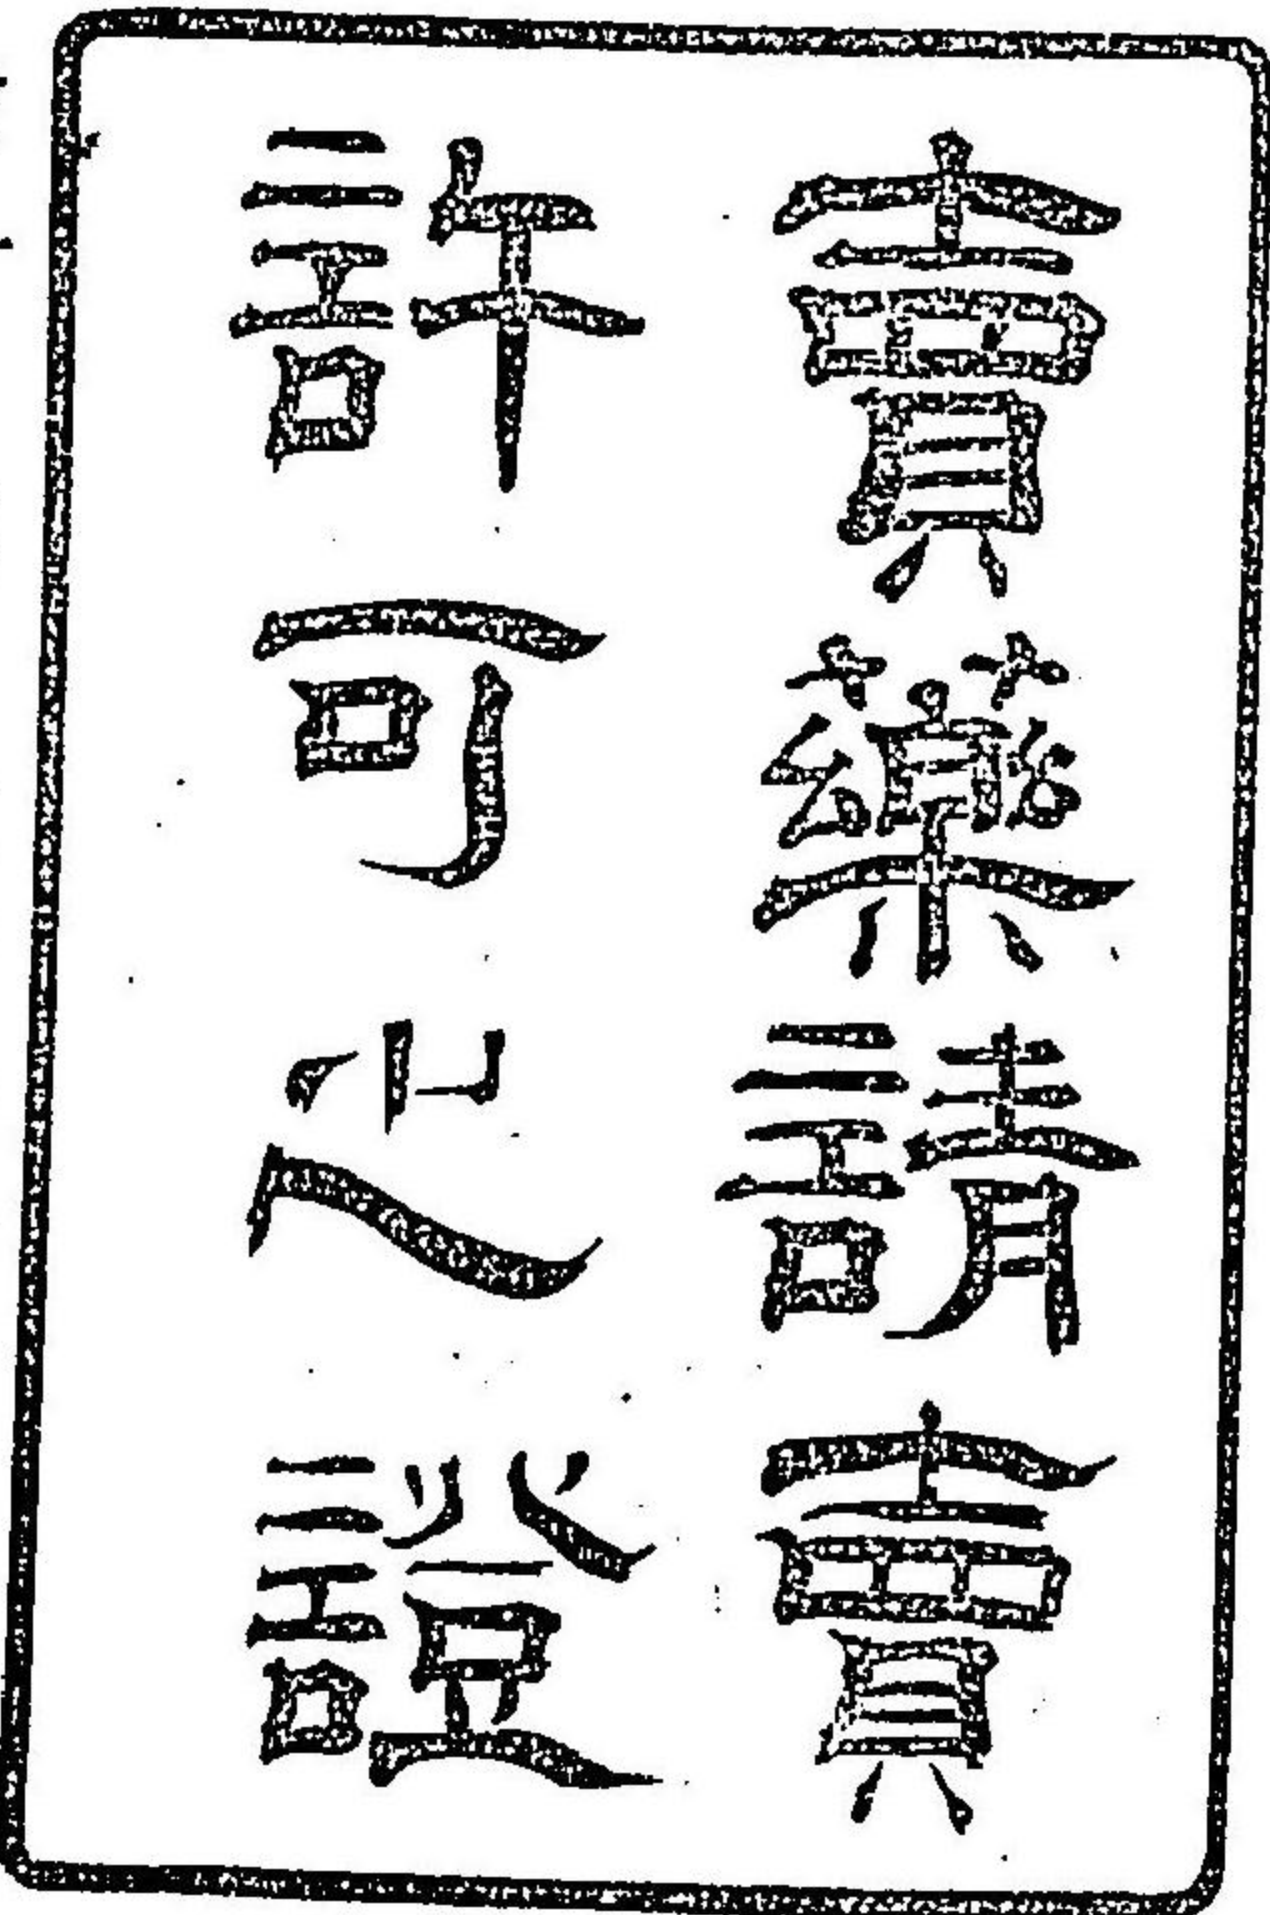 賣藥請賣
許可之證